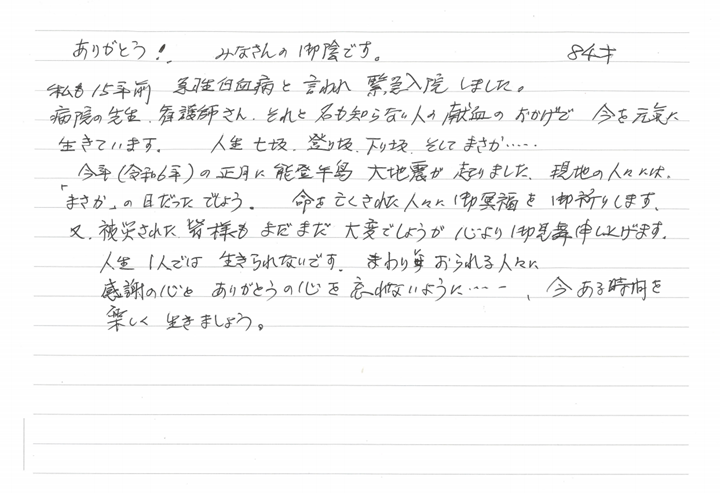 ありがとう! みなさんの御陰です。 84才
私も15年前 急性白血病と言われ 緊急入院しました。
病院の先生、看護師さん、それと名も知らない人の献血のおかげで 今を元気に
生きています。 人生七坂、登り坂、下り坂、そしてまさか……
今年(令和6年)の正月に能登半島 大地震が起りました、現地の人々には、
「まさか」の日だったでしょう。 命を亡くされた人々に御冥福を御祈りします、
又、被災された皆様もまだまだ大変でしょうが心より御見舞申し上げます、
人生1人では生きられないです、まわりにおられる人々に
感謝の心と ありがとうの心を忘れないように……、今ある時間を
楽しく生きましょう。